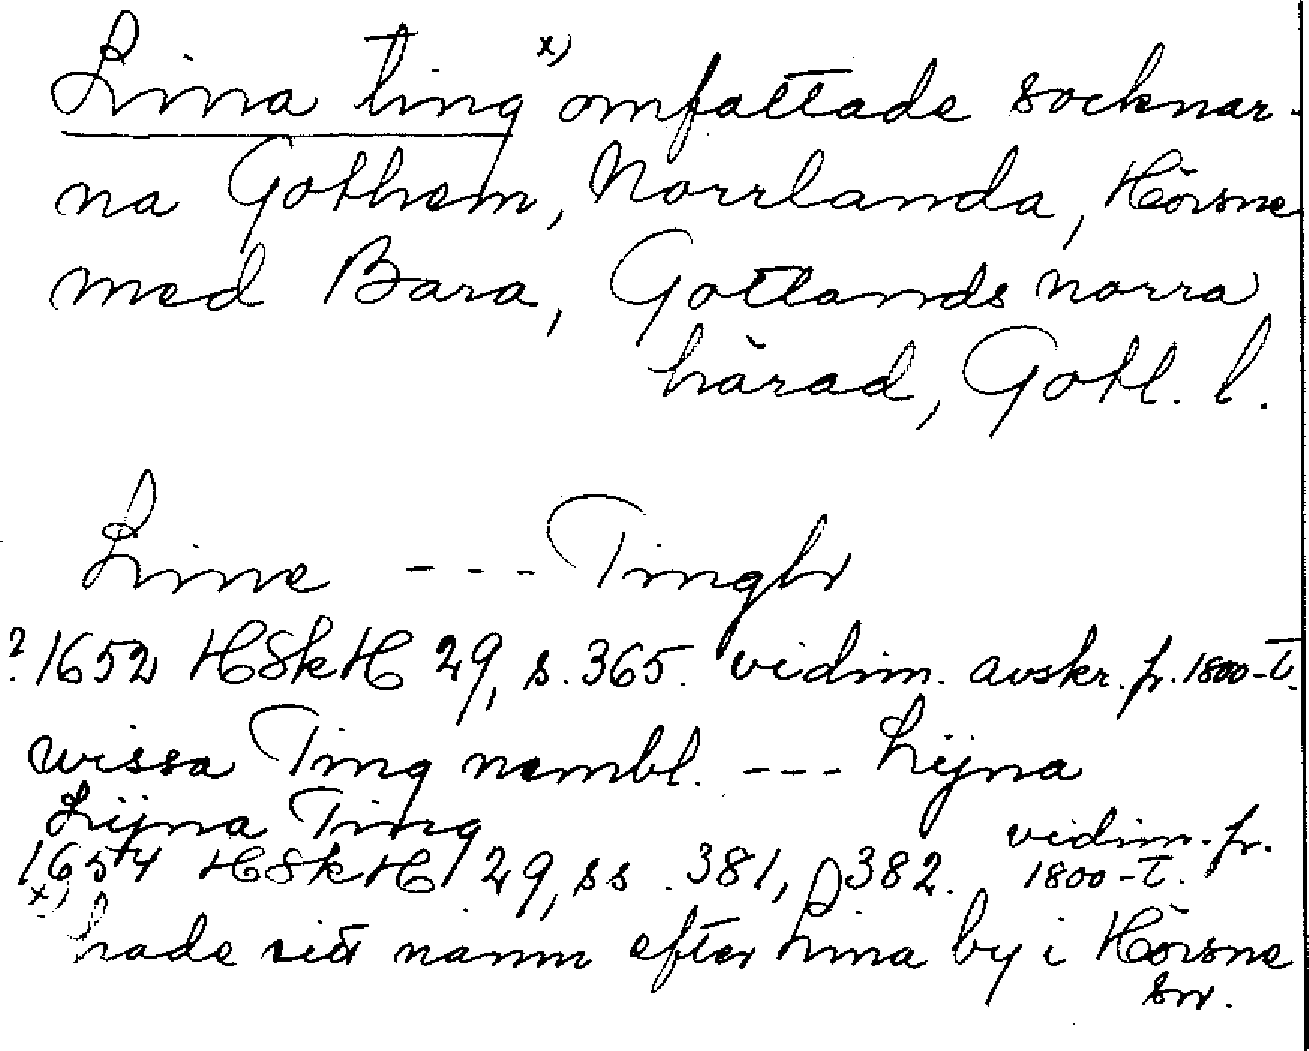 Lina ting x) omfattade socknar-
na Gothem, Norrlanda, Hörsne
med Bara, Gotlands norra
härad, Gotl. l.
Line --- Tingh
? 1652 HSkH 29, s. 365. vidim. avskr. fr. 1800-t.
wissa Ting nembl. --- Lijna
Lijna Ting
1654 HSkH 29, ss. 381, 382. vidim. fr. 1800-t.
x) hade sitt namn efter Lina by i Hörsne
sn.